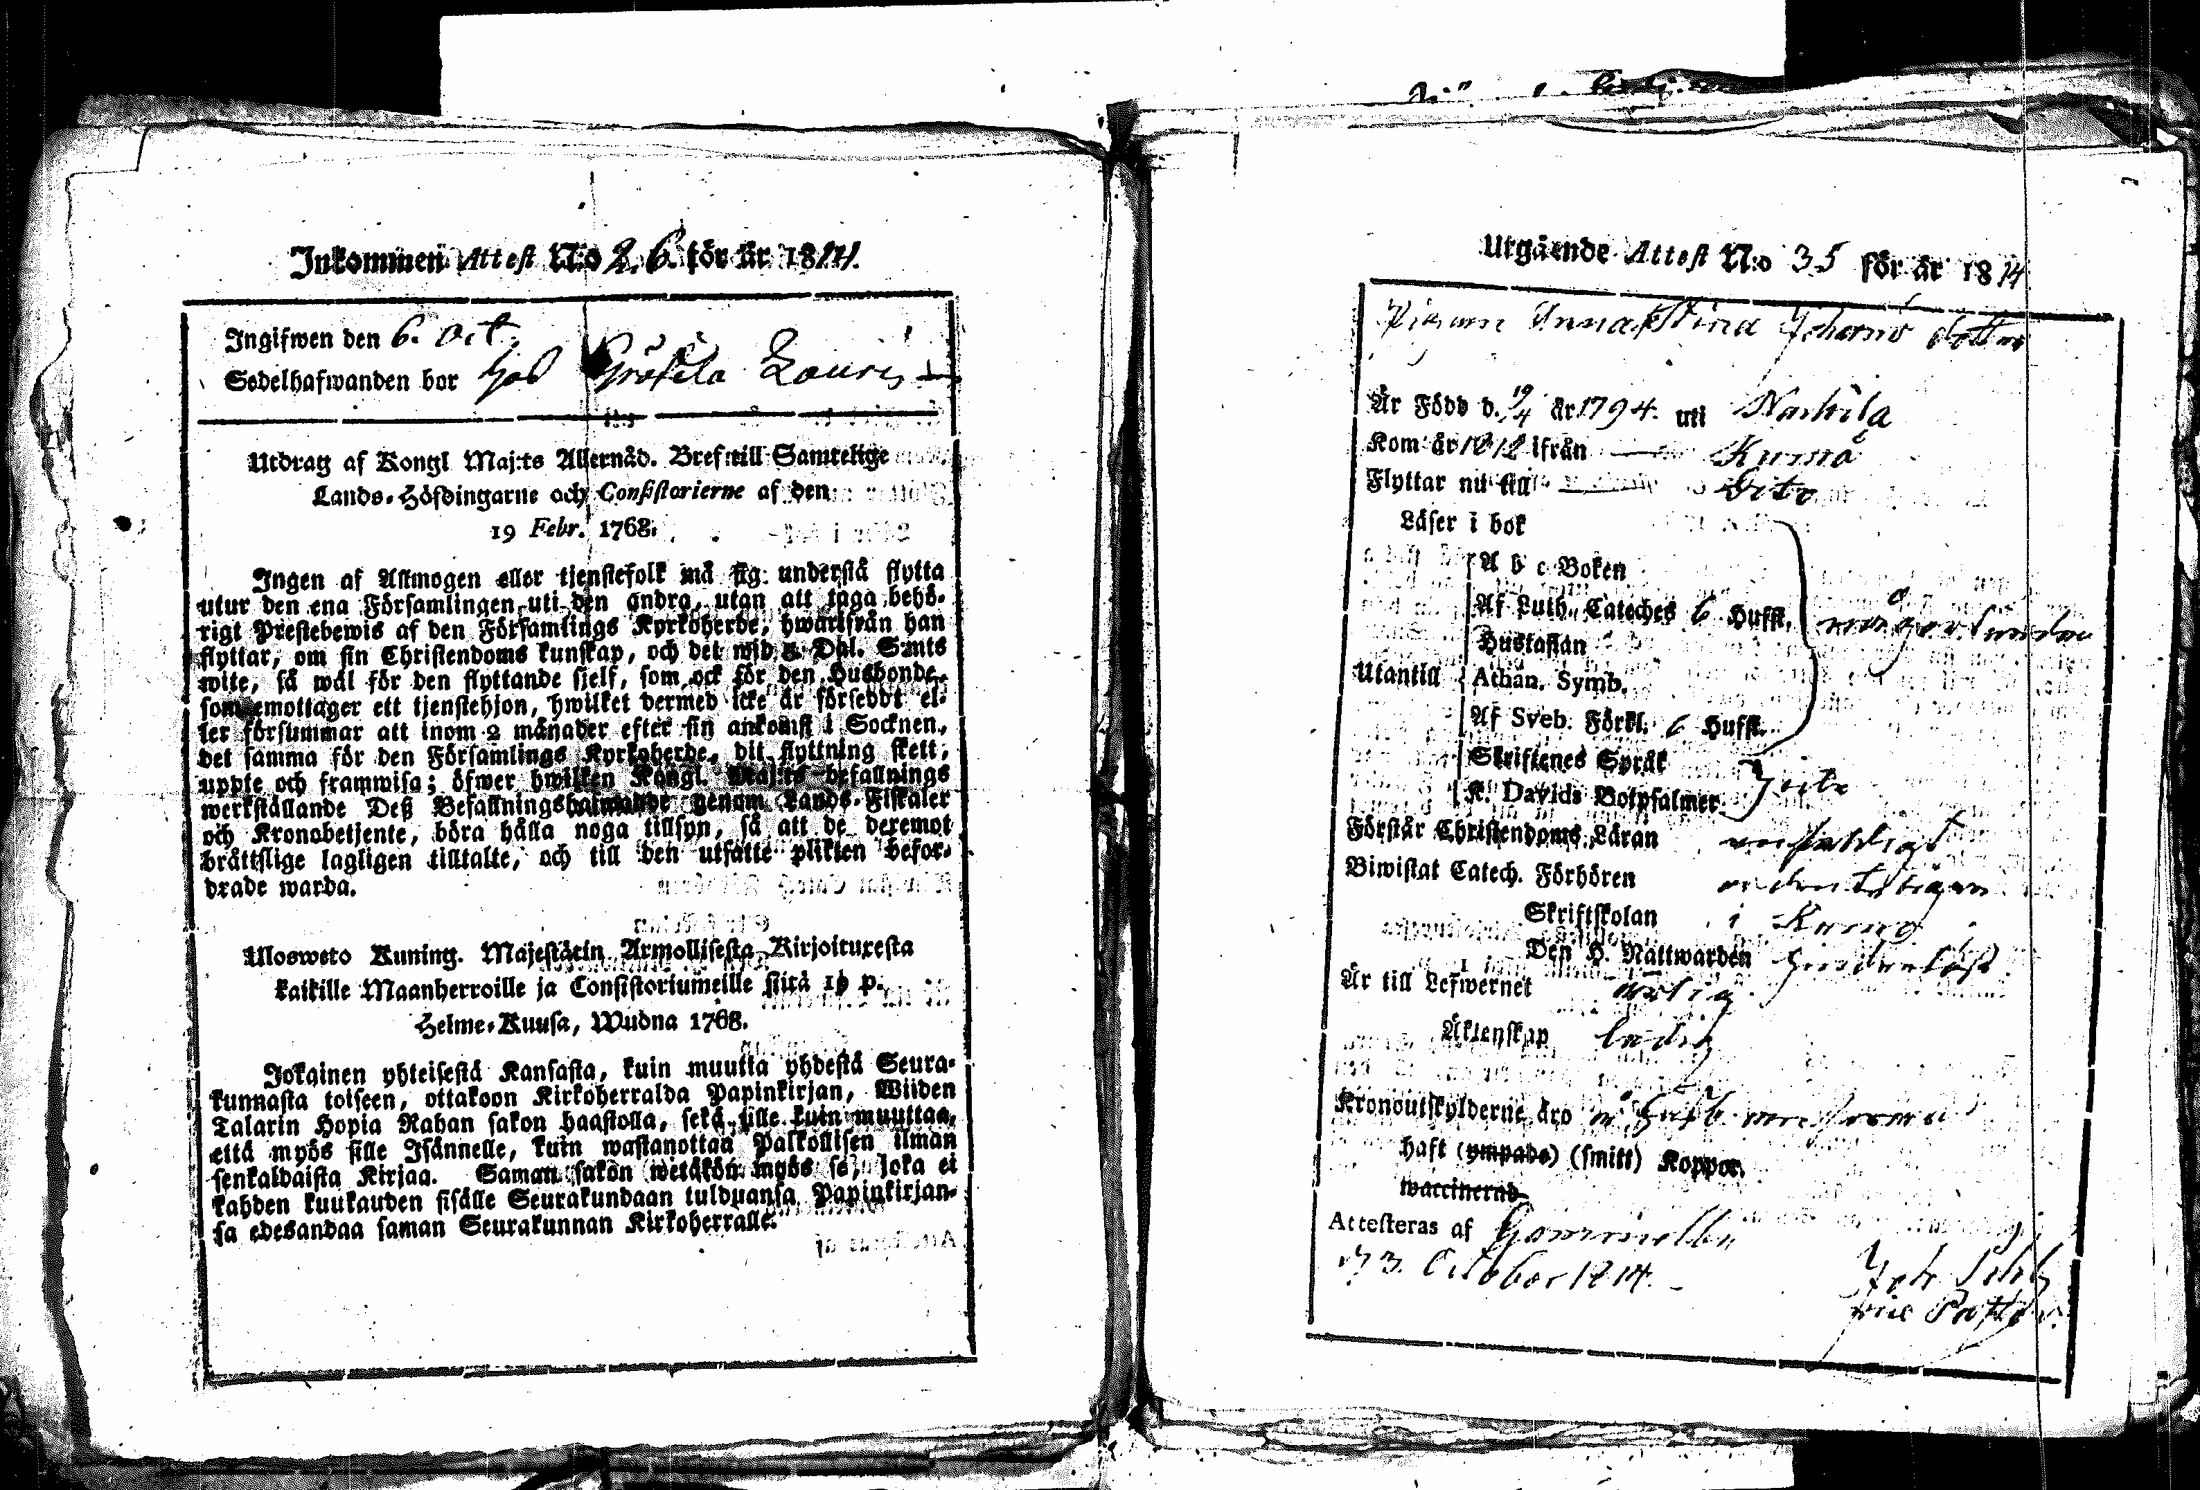 Inkommen Attest N:o 26. för år 1814.
Ingifwen den 6. Oct.
Sedelhafwanden bor hos Gröfila Lauri
Utdrag af Kongl Maj:ts Allernåd. Bref till Samtelige
Lands-Höfdingarne och Consistorierne af den
19 Febr. 1768.
Ingen af Allmogen eller tjenstefolk må sig understå flytta
utur den ena Församlingen uti den andra, utan att taga behö-
rigt Prestebewis af den Församlings Kyrkoherde, hwarifrån han
flyttar, om sin Christendoms kunskap, och det wid 5. Dal. Smts
wite, så wäl för den flyttande sjelf, som ock för den Husbonde,
som emottager ett tjenstehjon, hwilket dermed icke är försedt el-
ler försummar att inom 2 månader efter sin ankomst i Socknen,
det samma för den Församlings Kyrkoherde, dit flyttning skett,
uppte och framwisa; öfwer hwilken Kongl. Maj:ts befallnings
werkställande Deß Befallningshafwande genom Lands-Fiskaler
och Kronobetjente, böra hålla noga tillsyn, så att de deremot
bråttslige lagligen tilltalte, och till den utsatte plikten befor-
drade warda.
Ulosweto Kuning. Majestätin Armollisesta Kirjoituxesta
kaikille Maanherroille ja Consistoriumeille siitä 19 p.
Helme-Kuusa, Wuonna 1768.
Jokainen yhteisestä Kansasta, kuin muutta yhdestä Seura-
kunnasta toiseen, ottakoon Kirkoherralda Papinkirjan, Wiiden
Talarin Hopia Rahan sakon haastolla, sekä sille kuin muuttaa,
että myös sille Isännelle, kuin wastanottaa Palkollisen ilman
senkaldaista Kirjaa. Saman sakon wetäkön myös se, joka ei
kahden kuukauden sisälle Seurakundaan tulduansa Papinkirjan-
sa edesandaa saman Seurakunnan Kirkoherralle.
Utgående Attest N:o 35 för år 1814
Pigan Anna Stina Johans dotter
Är Född d. 19/4 år 1794. uti Nackila
Kom år 1812 ifrån Kumo
Flyttar nu till Dito
Läser i bok
A b c Boken
Af Luth. Cateches 6 Hufst. någorlunda
Hustaflan
Utantill Athan. Symb.
Af Sveb. Förkl. 6 Hufst.
Skriftenes Språk
K. Davids Botpsalmer Icke
Förstår Christendoms Läran enfaldigt
Biwistat Catech. Förhören
Skriftskolan i Kumo
Den H. Nattwarden hinderlöst
Är till Lefwernet ärlig
Äktenskap ledig
Kronoutskylderne äro
haft (ympade) (smitt) Koppor,
waccinerad
Attesteras af
d 3. October 1814.